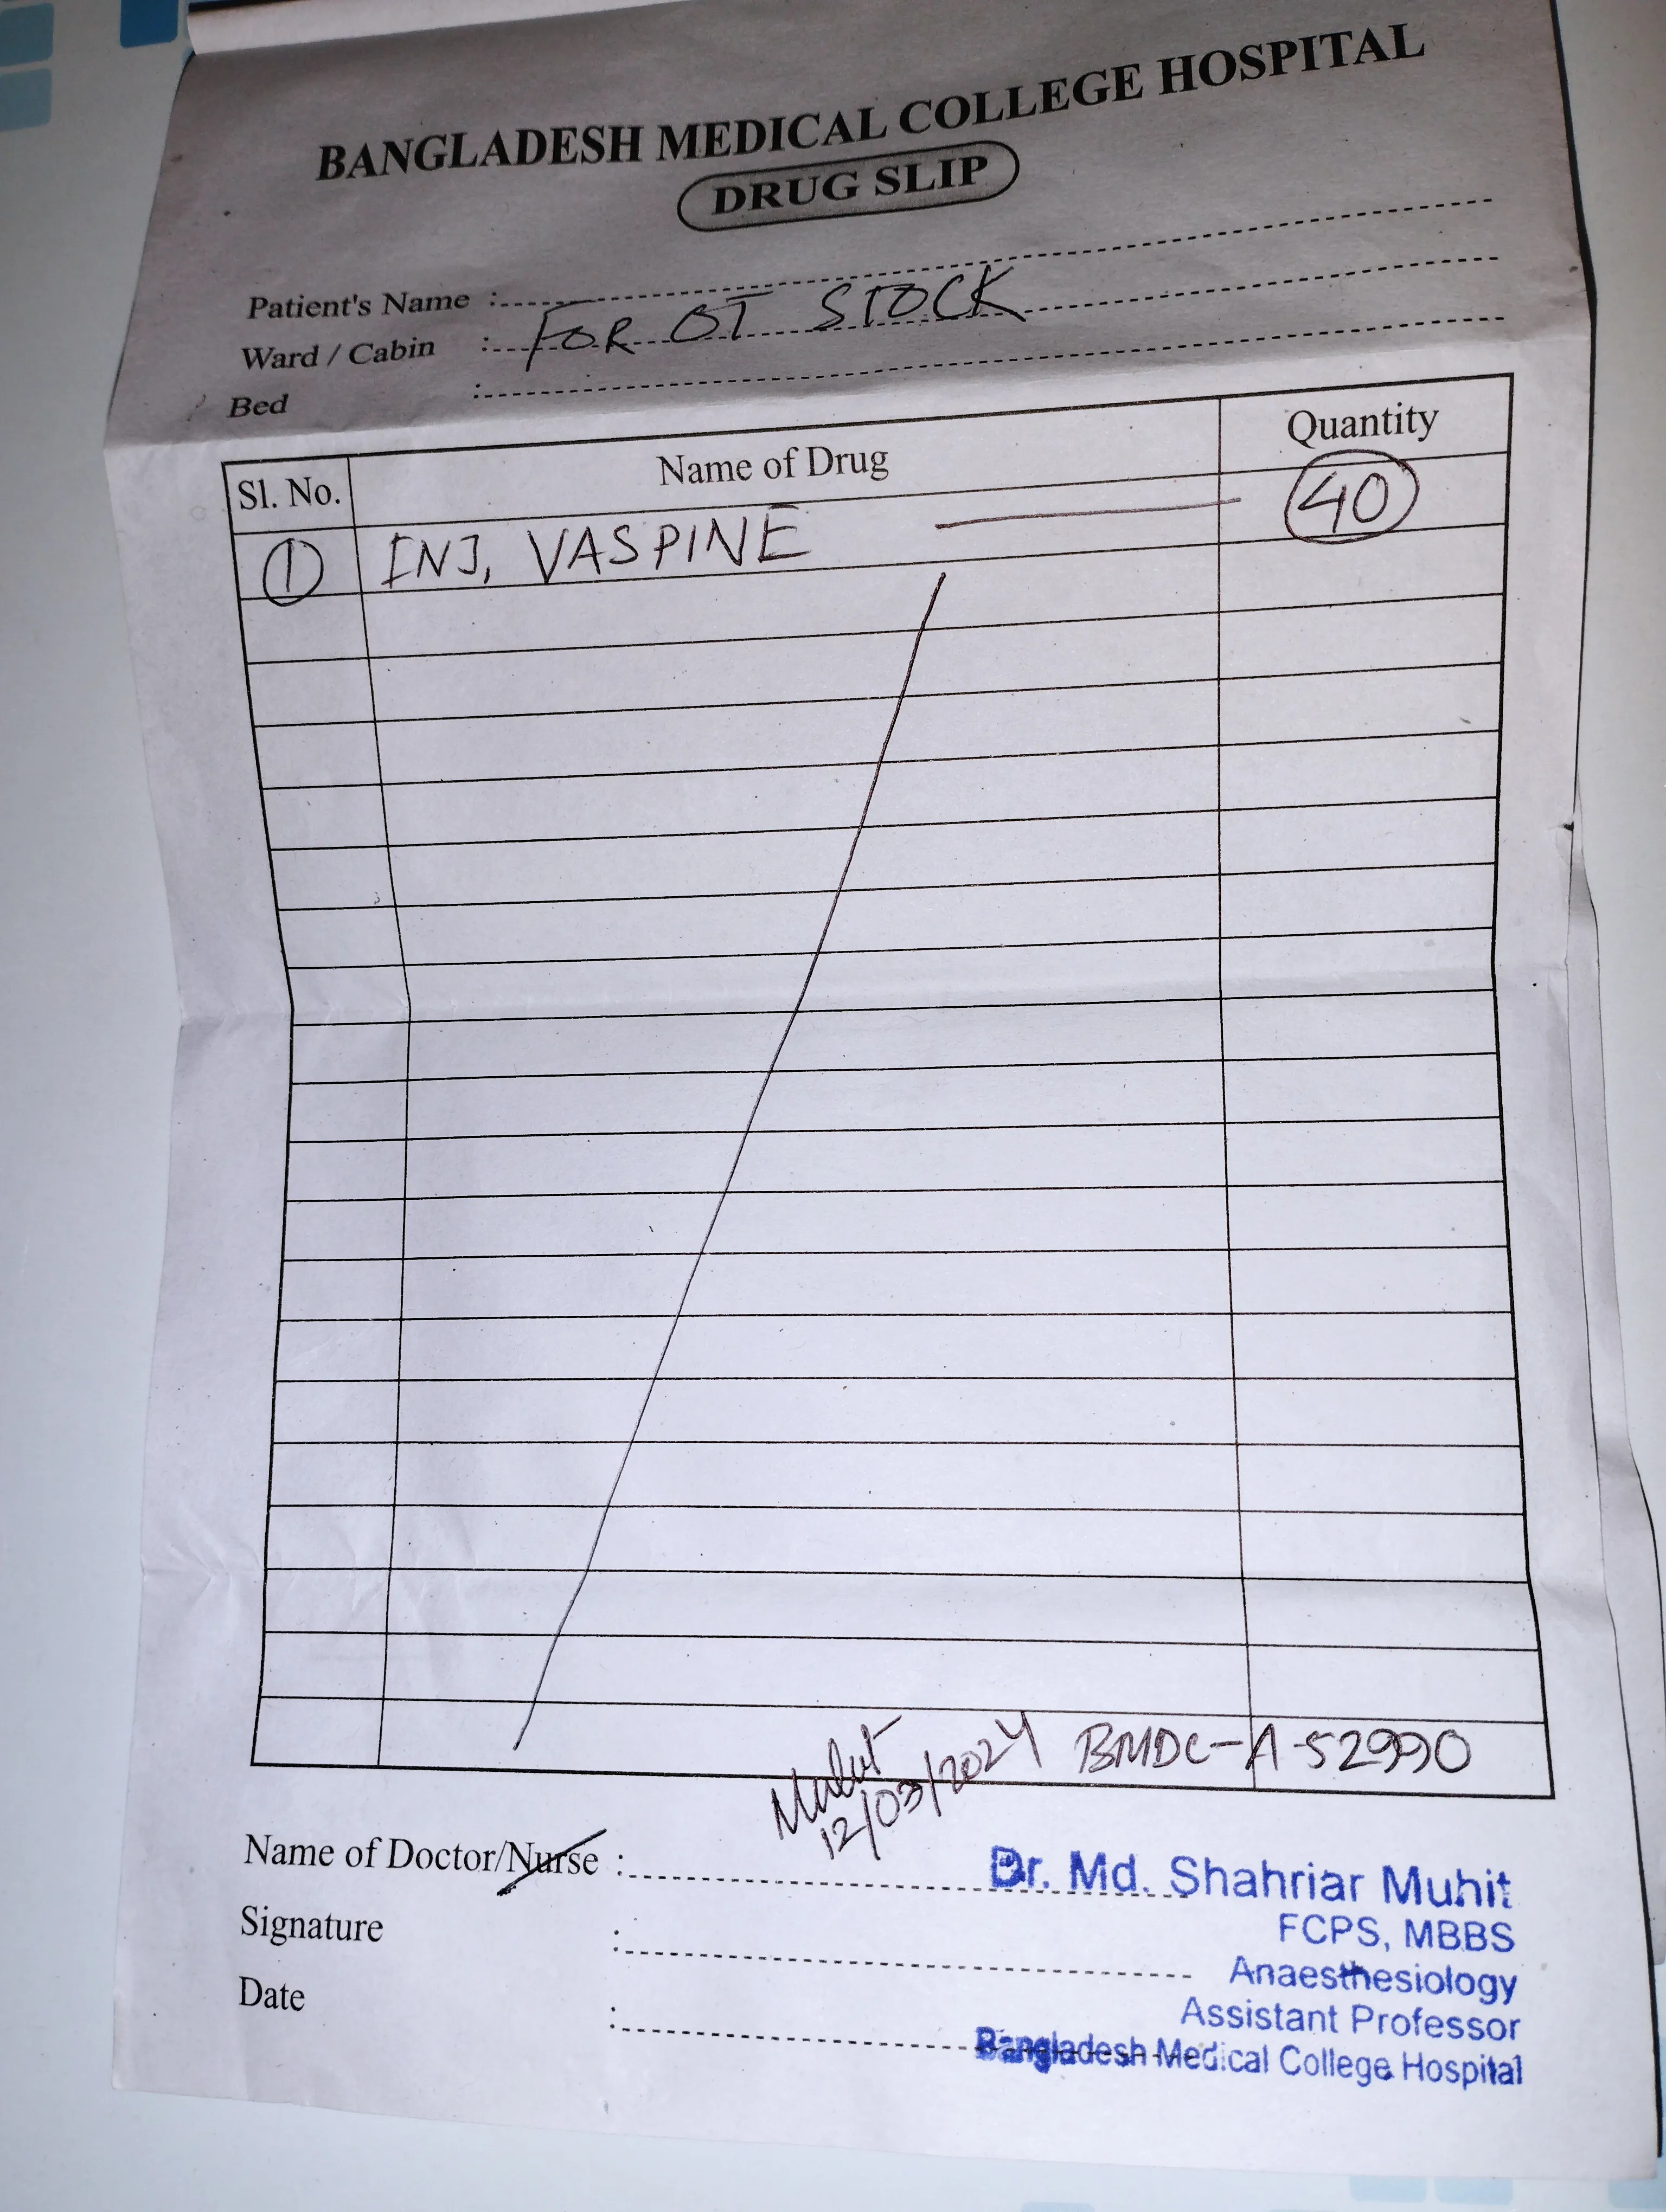 BANGLADESH MEDICAL COLLEGE HOSPITAL
DRUG SLIP
Patient's Name :
Ward / Cabin : FOR OT STOCK
Bed :
Sl. No. Name of Drug Quantity
1 INJ, VASPINE 40
Muhit
12/03/2024 BMDC-A-52990
Name of Doctor/Nurse :
Dr. Md. Shahriar Muhit
FCPS, MBBS
Signature :
Anaesthesiology
Assistant Professor
Date :
Bangladesh Medical College Hospital